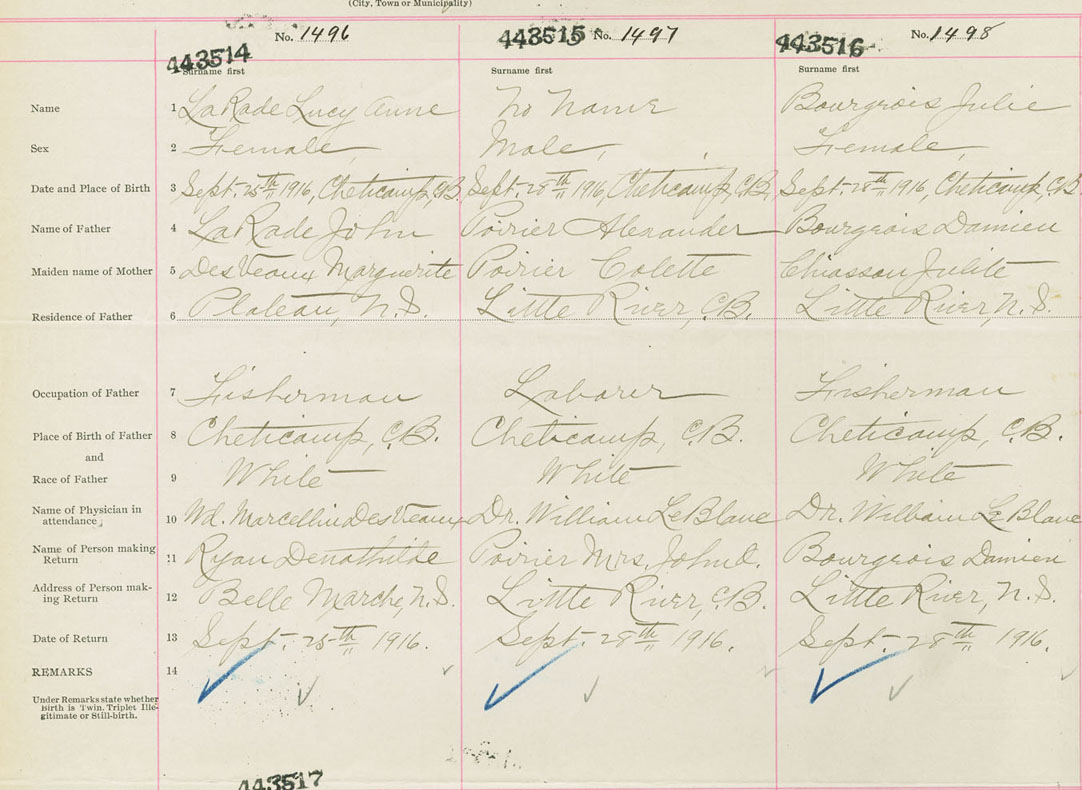 (City, Town or Municipality)
No. 1496 443515 No. 1497 No. 1498
443514 443516
Surname first Surname first Surname first
Name 1 LaRade Lucy Anne No Name Bourgeois Julie
Sex 2 Female, Male, Female,
Date and Place of Birth 3 Sept. 25th 1916, Cheticamp, C.B. Sept. 28th 1916, Cheticamp, C.B. Sept. 28th 1916, Cheticamp, C.B
Name of Father 4 LaRade John Poirier Alexander Bourgeois Damien
Maiden name of Mother 5 DesVeaux Marguerite Poirier Colette Chiasson Julite
Residence of Father 6 Plateau, N.S. Little River, C.B. Little River, N.S.
Occupation of Father 7 Fisherman Laborer Fisherman
Place of Birth of Father 8 Cheticamp, C.B. Cheticamp, C.B. Cheticamp, C.B.
and
Race of Father 9 White White White
Name of Physician in
attendance 10 Wd. Marcellin DesVeaux Dr. William LeBlanc Dr. William LeBlanc
Name of Person making
Return 11 Ryan Poirier Mrs. John Bourgeois Damien
Address of Person mak-
ing Return 12 Belle Marche, N.S. Little River, C.B. Little River, N.S.
Date of Return 13 Sept. 25th 1916. Sept. 28th 1916. Sept. 28th 1916.
REMARKS 14
Under Remarks state whether
Birth is Twin. Triplet Ille-
gitimate or Still-birth.
443517